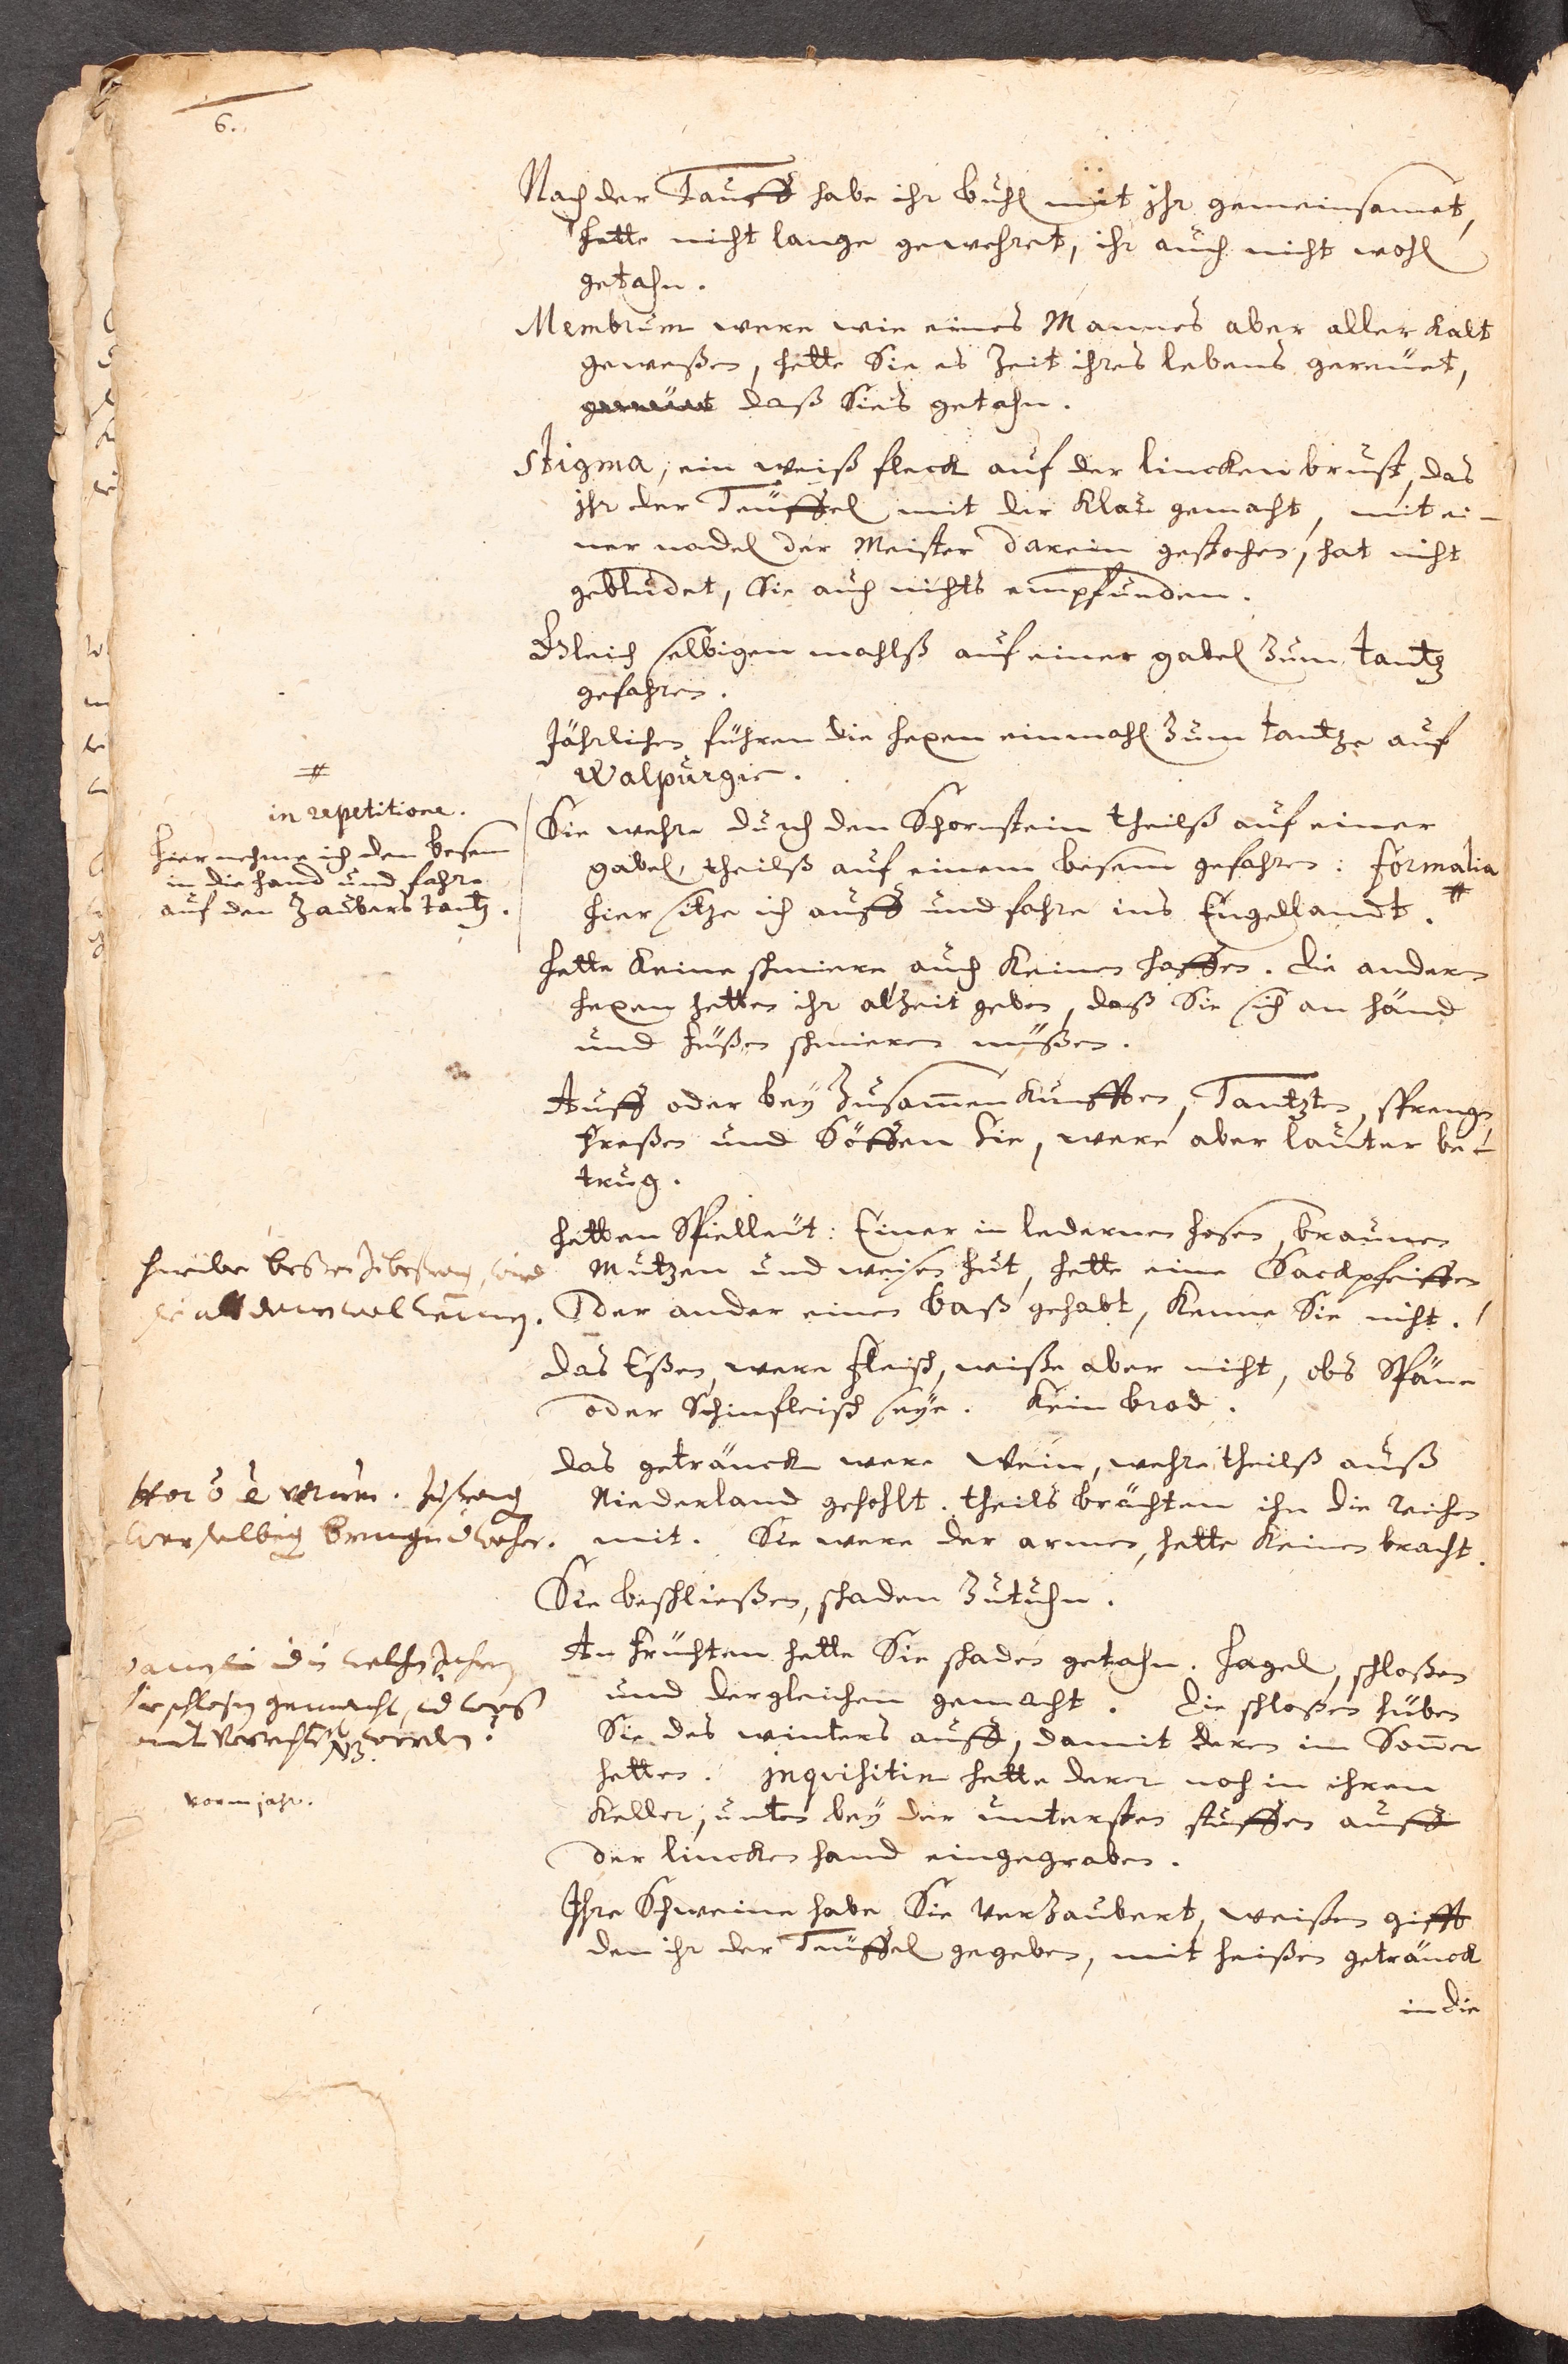 6.
Nach der Tauff habe ihr buhl mit ihr gemeinsamet,
hette nicht lange gewehret, ihr auch nicht wohl
getahn.
Membrum were wie eines Mannes aber aller kalt
geweßen, hette Sie es Zeit ihres lebens gereuet,
daß Sies getahn.
Stigma, ein weiß fleck auf der lincken brust, das
ihr der Teuffel mit der Klau gemacht, mit ei-
ner nadel der Meister darein gestochen, hat nicht
gebludet, Sie auch nichts empfunden.
Gleich selbigen mahlß auf einer gabel zum tantz
gefahren.
Jährlichen führen die hexen einmahl zum tantze auf
Walpurgis.
#
in repetitione.
hier nehme ich den besem
in die hand und fahre
auf den Zaubers tantz.
Sie wehre durch den Schornstein theilß auf einer
gabel, theilß auf einem besem gefahren: formalia
hier sitze ich auff und fahre ins Engellandt. #
hette keine schmiere auch keinen haffen. die anderen
hexen hetten ihr alzeit geben, daß Sie sich an händ
und füßen schmieren müßen.
Auff oder bey Zusammenkunfften, Tantzten, sprengen
fraßen und Söffen Sie, were aber lauter be-
trug.
hetten Spielleut: Einer in ledernen hosen, braunen
Mutzen und weisen hut, hette eine Sackpfeiffen
der ander einen baß gehabt, kenne Sie nicht.
das Eßen, were fleisch, weiße aber nicht, obs Späne
oder Schinfleisch seye. Kein brod.
das geträncke were Wein, wehre theilß auß
Niederland gehohlt. theils brächten ihn die reichen
mit. Sie were der armen, hette keinen bracht.
Sie beschließen, schaden zutuhn.
An früchten hette Sie schaden getahn. hagel, schloßen
und dergleichen gemacht. die schloßen hüben
Sie des winters auff, damit deren im Sommer
hetten. Inquisitin hette derer noch in ihren
Keller, unten bey der untersten stuffen auff
der lincken hand eingegraben.
vorm jahr.
Ihre Schweine habe Sie verzaubert, weißen gifft
den ihr der Teuffel gegeben, mit heißen geträncke
in die